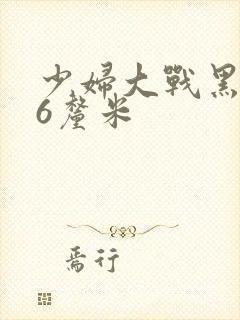 少婦大戰黑
6釐米
焉行